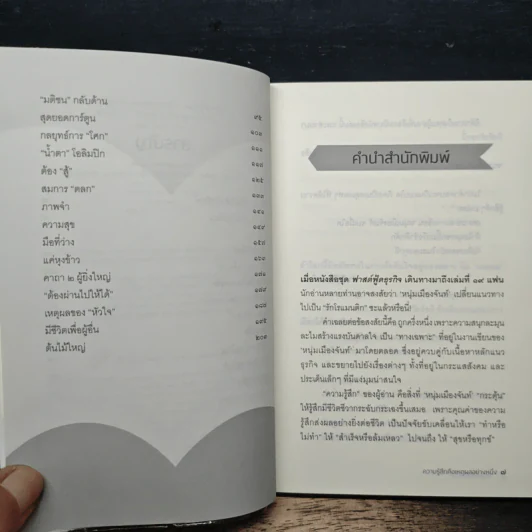 "มติชน" กลับด้าน
สุดยอดการ์ตูน ๙๕
กลยุทธ์การ "โคก"
"น้ำตา" โอลิมปิก
ต้อง "สู้" ๑๒๕
สมการ "ตลก"
ภาพจำ
ความสุข
มือที่ว่าง ๑๕๗
แค่หุงข้าว
คาถา ๒ ผู้ยิ่งใหญ่
"ต้องผ่านไปให้ได้"
เหตุผลของ "หัวใจ"
มีชีวิตเพื่อผู้อื่น
ต้นไม้ใหญ่
คำนำสำนักพิมพ์
เมื่อหนังสือชุด ฟาสต์ฟู้ดธุรกิจ เดินทางมาถึงเล่มที่ ๑๙ แฟน
นักอ่านหลายท่านอาจสงสัยว่า 'หนุ่มเมืองจันท์' เปลี่ยนแนวทาง
ไปเป็น "รักโรแมนติก" ซะแล้วหรือนี่!
คำเฉลยต่อข้อสงสัยนี้คือ ถูกครึ่งหนึ่ง เพราะความสนุกละมุน
ละไมสร้างแรงบันดาลใจ เป็น "ทางเฉพาะ" ที่อยู่ในงานเขียนของ
'หนุ่มเมืองจันท์' มาโดยตลอด ซึ่งอยู่ควบคู่กับเนื้อหาหลักแนว
ธุรกิจ และขยายไปยังเรื่องต่างๆ ทั้งที่อยู่ในกระแสสังคม และ
ประเด็นเล็กๆ ที่มีแง่มุมน่าสนใจ
"ความรู้สึก" ของผู้อ่าน คือสิ่งที่ 'หนุ่มเมืองจันท์' "กระตุ้น"
ให้รู้สึกมีชีวิตชีวากระฉับกระเฉงขึ้นเสมอ เพราะคุณค่าของความ
รู้สึกส่งผลอย่างยิ่งต่อชีวิต เป็นปัจจัยขับเคลื่อนให้เรา "ทำหรือ
ไม่ทำ" ให้ "สำเร็จหรือล้มเหลว" ไปจนถึง ให้ "สุขหรือทุกข์"
ความรู้สึกคือเหตุผลอย่างหนึ่ง ๗